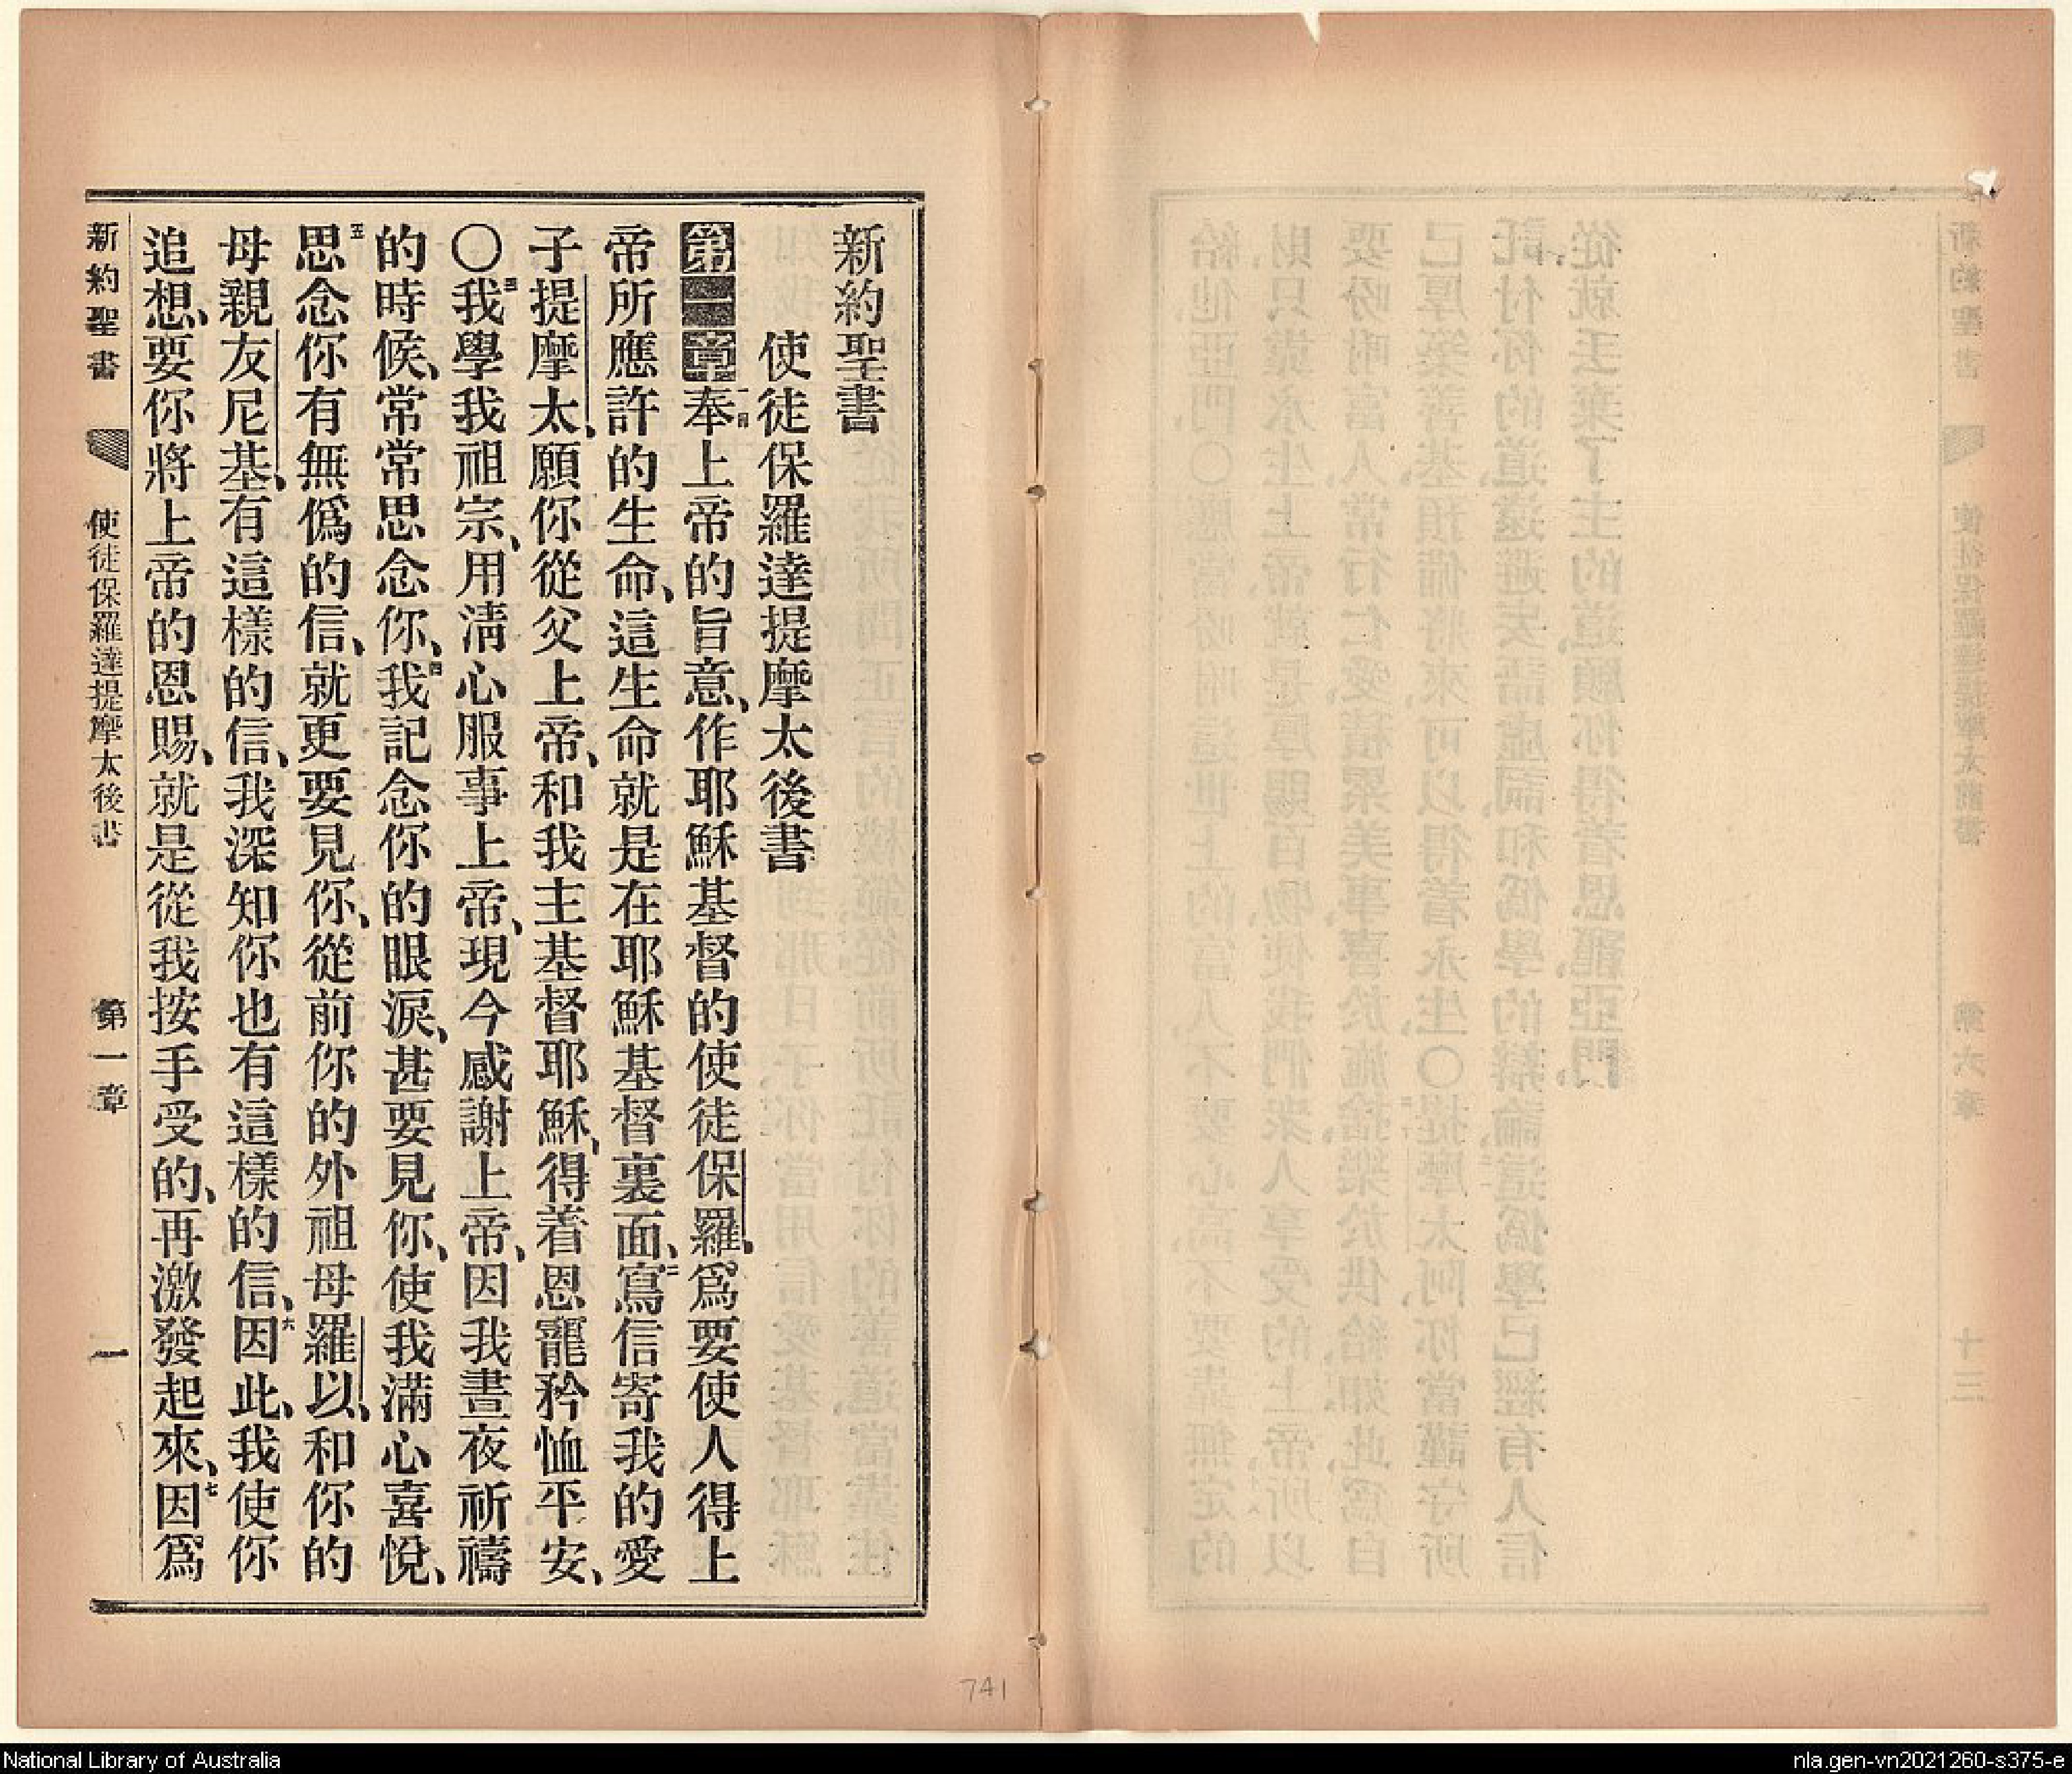 新約聖書
使徒保羅達提摩太後書
第一章一奉上帝的旨意、作耶穌基督的使徒保羅、爲要使人得上
帝所應許的生命、這生命就是在耶穌基督裏面、二寫信寄我的愛
子提摩太、願你從父上帝、和我主基督耶穌、得着恩寵矜恤平安、
〇三我學我祖宗、用淸心服事上帝、現今感謝上帝、因我晝夜祈禱
的時候、常常思念你、四我記念你的眼淚、甚要見你、使我滿心喜悅、
五思念你有無僞的信、就更要見你、從前你的外祖母羅以、和你的
母親友尼基、有這樣的信、我深知你也有這樣的信、六因此、我使你
追想、要你將上帝的恩賜、就是從我按手受的、再激發起來、七因爲
新約聖書 使徒保羅達提摩太後書 第一章 一
741
National Library of Australia
nla.gen-vn2021260-s375-e